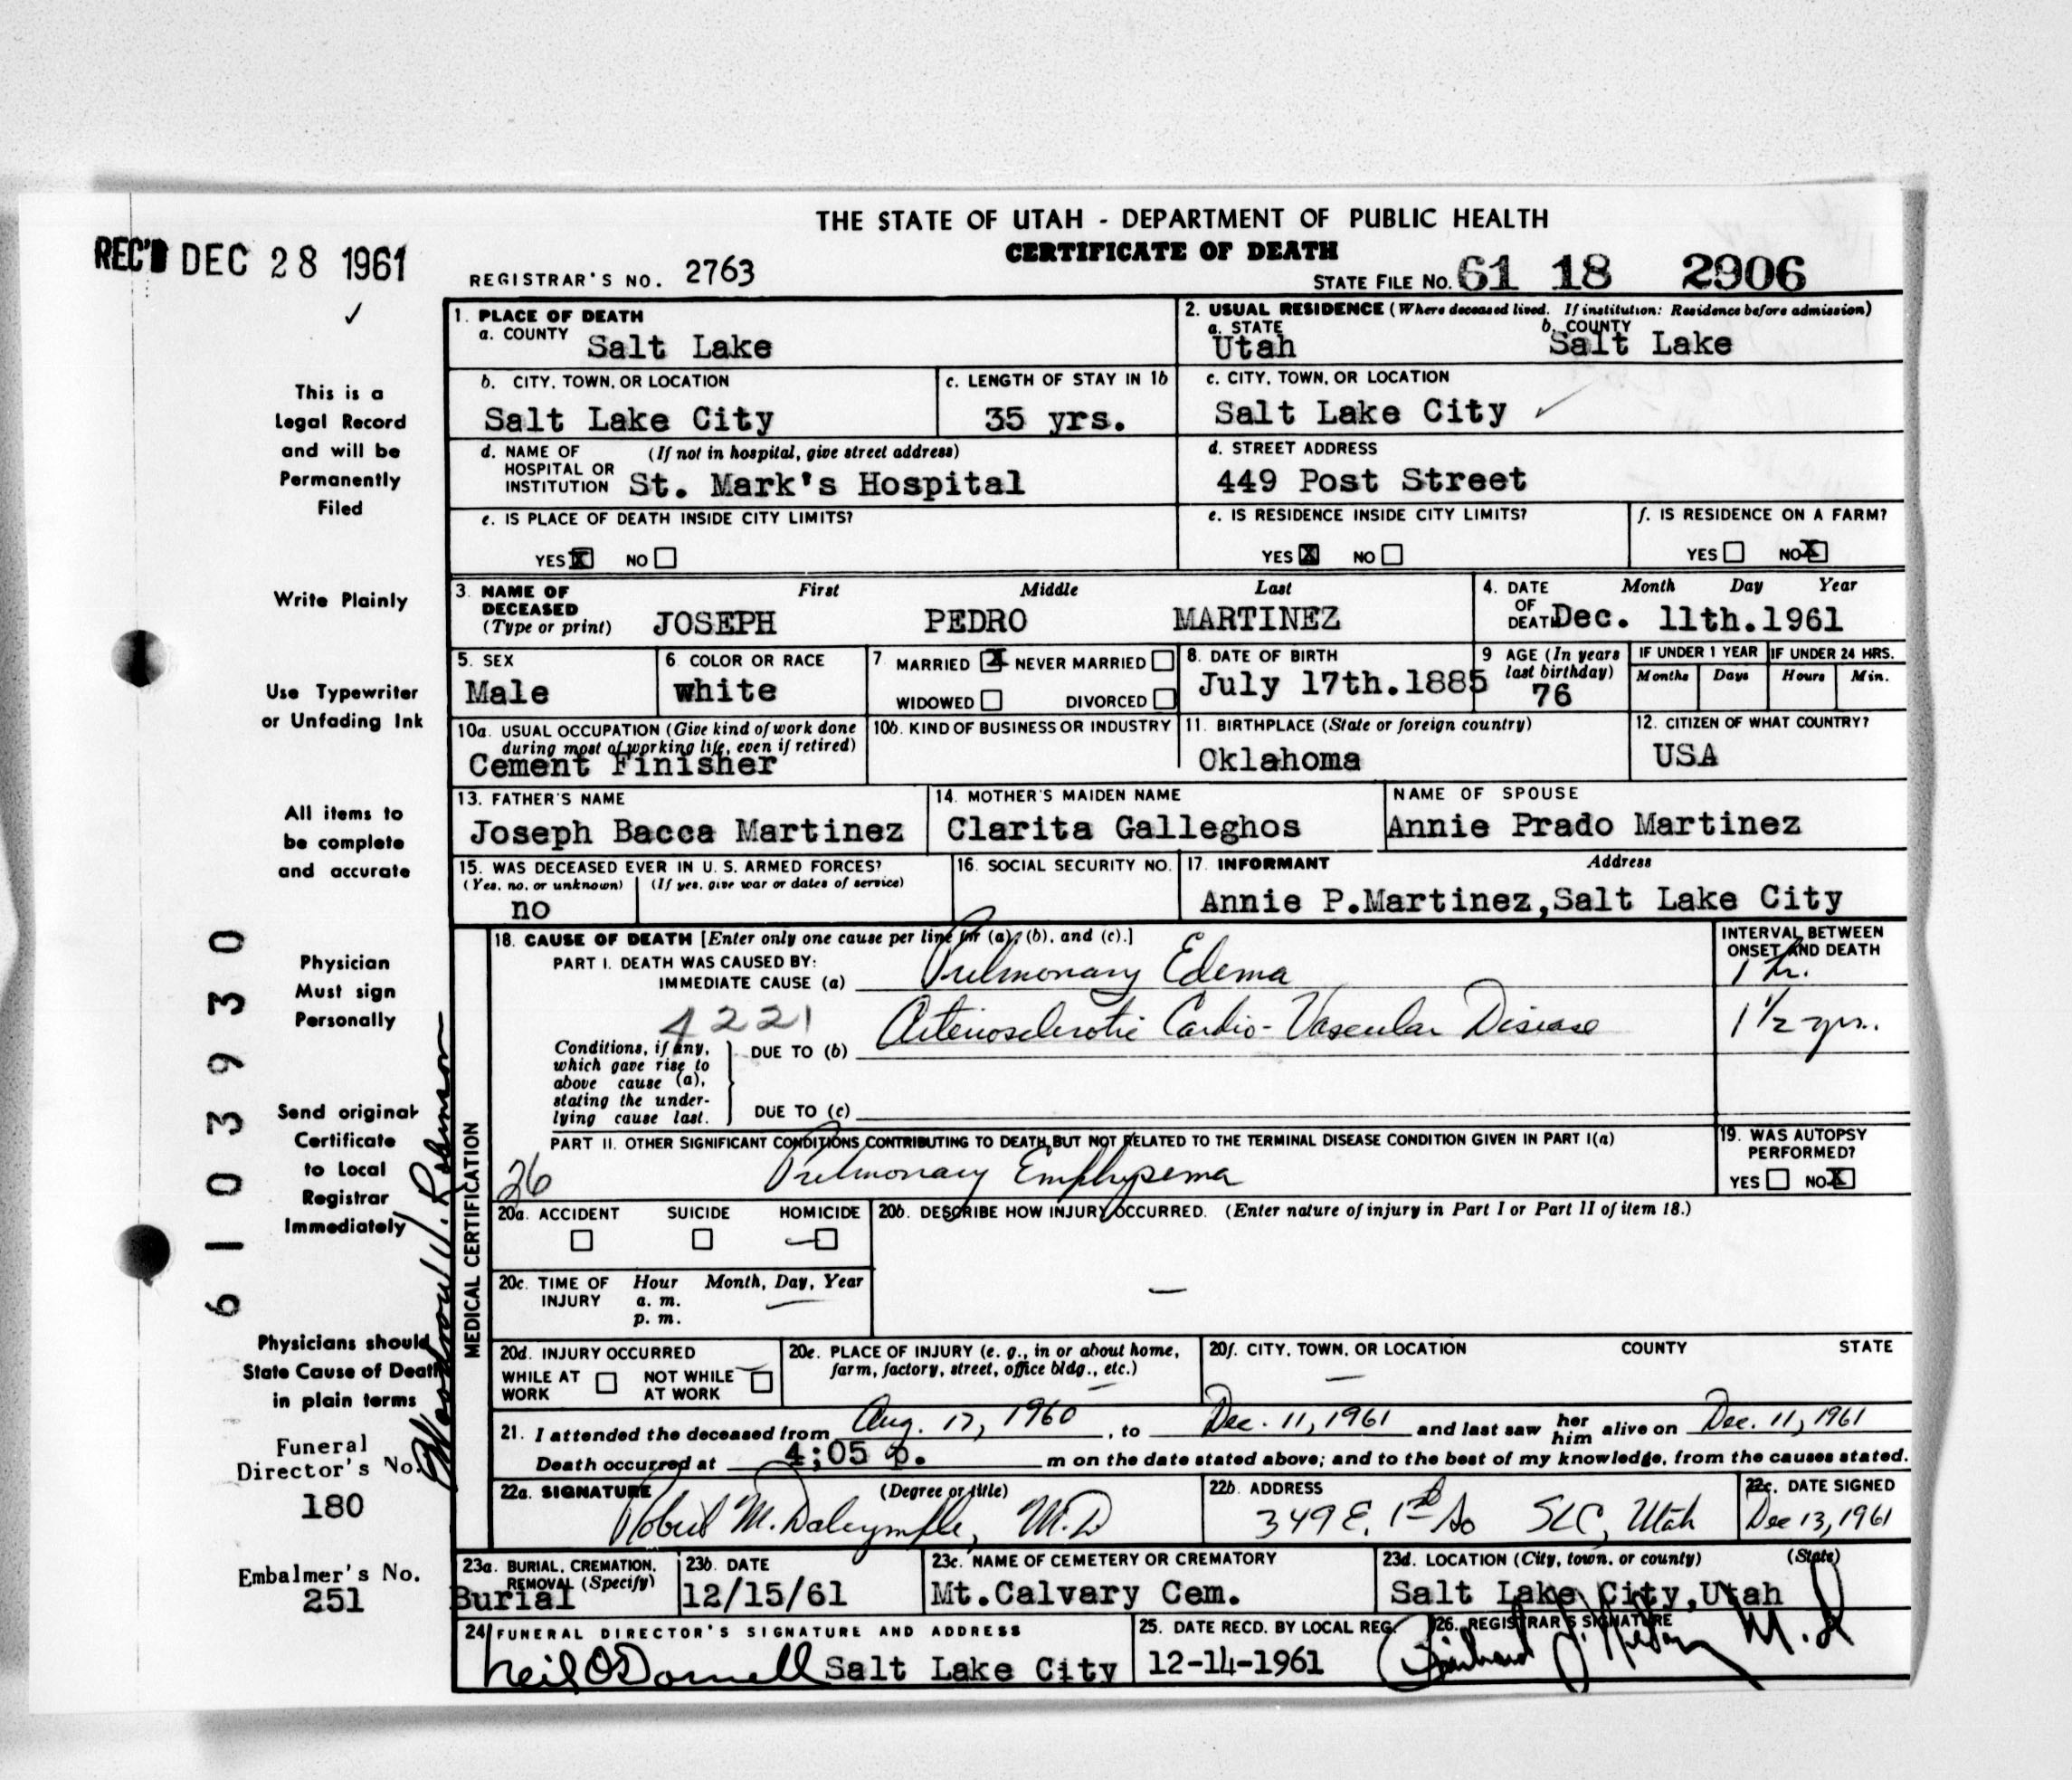 THE STATE OF UTAH - DEPARTMENT OF PUBLIC HEALTH
CERTIFICATE OF DEATH
REC'D DEC 28 1961
REGISTRAR'S NO. 2763
STATE FILE NO. 61 18 2906
1. PLACE OF DEATH
a. COUNTY Salt Lake
2. USUAL RESIDENCE (Where deceased lived. If institution: Residence before admission)
a. STATE Utah b. COUNTY Salt Lake
b. CITY, TOWN, OR LOCATION Salt Lake City
c. LENGTH OF STAY IN 1b 35 yrs.
c. CITY, TOWN, OR LOCATION Salt Lake City
d. NAME OF HOSPITAL OR INSTITUTION (If not in hospital, give street address) St. Mark's Hospital
d. STREET ADDRESS 449 Post Street
e. IS PLACE OF DEATH INSIDE CITY LIMITS?
YES X NO
e. IS RESIDENCE INSIDE CITY LIMITS?
YES X NO
f. IS RESIDENCE ON A FARM?
YES NO X
3. NAME OF DECEASED (Type or print)
First Middle Last
JOSEPH PEDRO MARTINEZ
4. DATE OF DEATH Month Day Year
Dec. 11th.1961
5. SEX Male
6. COLOR OR RACE white
7 MARRIED X NEVER MARRIED
WIDOWED DIVORCED
8. DATE OF BIRTH July 17th.1885
9 AGE (In years last birthday) 76
IF UNDER 1 YEAR Months Days
IF UNDER 24 HRS. Hours Min.
10a. USUAL OCCUPATION (Give kind of work done during most of working life, even if retired)
Cement Finisher
10b. KIND OF BUSINESS OR INDUSTRY
11. BIRTHPLACE (State or foreign country) Oklahoma
12. CITIZEN OF WHAT COUNTRY? USA
13. FATHER'S NAME Joseph Bacca Martinez
14. MOTHER'S MAIDEN NAME Clarita Galleghos
NAME OF SPOUSE Annie Prado Martinez
15. WAS DECEASED EVER IN U. S. ARMED FORCES?
(Yes, no, or unknown) (If yes, give war or dates of service)
no
16. SOCIAL SECURITY NO.
17. INFORMANT Address
Annie P.Martinez,Salt Lake City
MEDICAL CERTIFICATION
18. CAUSE OF DEATH [Enter only one cause per line for (a), (b), and (c).]
INTERVAL BETWEEN ONSET AND DEATH
PART I. DEATH WAS CAUSED BY:
IMMEDIATE CAUSE (a) Pulmonary Edema 1 hr.
4221
Conditions, if any, which gave rise to above cause (a), stating the underlying cause last.
DUE TO (b) Arteriosclerotic Cardio-Vascular Disease 1 1/2 yrs.
DUE TO (c)
PART II. OTHER SIGNIFICANT CONDITIONS CONTRIBUTING TO DEATH BUT NOT RELATED TO THE TERMINAL DISEASE CONDITION GIVEN IN PART I(a)
26 Pulmonary Emphysema
19. WAS AUTOPSY PERFORMED?
YES NO X
20a. ACCIDENT SUICIDE HOMICIDE
20b. DESCRIBE HOW INJURY OCCURRED. (Enter nature of injury in Part I or Part II of item 18.)
20c. TIME OF INJURY Hour Month, Day, Year
a. m.
p. m.
20d. INJURY OCCURRED
WHILE AT WORK NOT WHILE AT WORK
20e. PLACE OF INJURY (e. g., in or about home, farm, factory, street, office bldg., etc.)
20f. CITY, TOWN, OR LOCATION COUNTY STATE
21. I attended the deceased from Aug. 17, 1960, to Dec. 11, 1961 and last saw her him alive on Dec. 11, 1961
Death occurred at 4;05 p. m on the date stated above; and to the best of my knowledge, from the causes stated.
22a. SIGNATURE (Degree or title)
Robert M. Dalrymple, M.D
22b. ADDRESS 349 E. 1st So SLC, Utah
22c. DATE SIGNED Dec 13, 1961
23a. BURIAL, CREMATION, REMOVAL (Specify) Burial
23b. DATE 12/15/61
23c. NAME OF CEMETERY OR CREMATORY Mt.Calvary Cem.
23d. LOCATION (City, town, or county) (State)
Salt Lake City,Utah
24 FUNERAL DIRECTOR'S SIGNATURE AND ADDRESS
Neil O'Donnell Salt Lake City
25. DATE RECD. BY LOCAL REG. 12-14-1961
26. REGISTRAR'S SIGNATURE
M.D
This is a
Legal Record
and will be
Permanently
Filed
Write Plainly
Use Typewriter
or Unfading Ink
All items to
be complete
and accurate
Physician
Must sign
Personally
Send original
Certificate
to Local
Registrar
Immediately
Physicians should
State Cause of Death
in plain terms
Funeral
Director's No.
180
Embalmer's No.
251
6103930